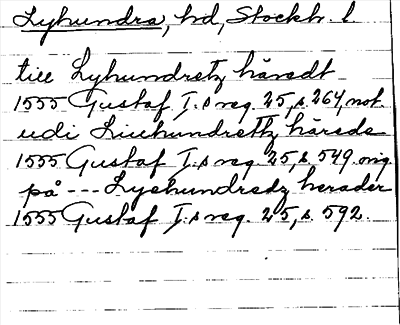 Lyhundra, hd, Stockh. l.
till Lyhundretz häredt
1555 Gustaf I.s reg. 25, s. 264, not.
udi Liuhundrettz härede
1555 Gustaf I.s reg. 25, s. 549. orig
på --- Lyehundredz herader
1555 Gustaf I.s reg. 25, s. 592.